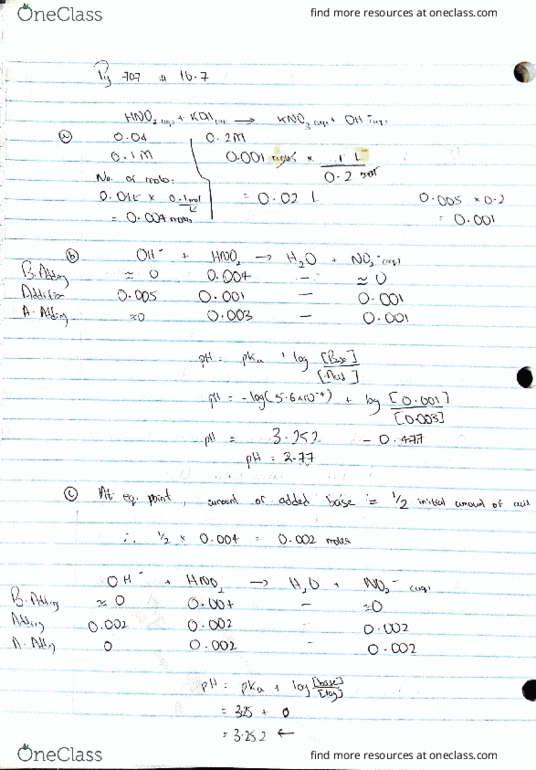 OneClass
find more resources at oneclass.com
Pg 707 # 16.7
HNO₂ (aq) + KOH (aq) → KNO₃ (aq) + OH⁻ (aq)
(a) 0.04 0.2M
0.1M 0.001 × 1 L
0.2
No. of mols:
0.04 × 0.1 mol = 0.02 L 0.005 × 0.2
L
= 0.004 moles = 0.001
(b) OH⁻ + HNO₂ → H₂O + NO₂⁻ (aq)
B. Adding ≈ 0 0.004 – ≈ 0
Addition 0.005 0.001 – 0.001
A. Adding ≈0 0.003 – 0.001
pH = pKa + log [Base]
[Acid]
pH = -log(5.6×10⁻⁴) + log [0.001]
[0.003]
pH = 3.252 - 0.477
pH = 2.77
(c) At eq. point, amount of added base is 1/2 initial amount of acid
∴ 1/2 × 0.004 = 0.002 moles
OH⁻ + HNO₂ → H₂O + NO₂⁻ (aq)
B. Adding ≈ 0 0.004 – ≈0
Adding 0.002 0.002 – 0.002
A. Adding 0 0.002 – 0.002
pH = pKa + log [base]
= 3.25 + 0
= 3.252 ←
OneClass
find more resources at oneclass.com